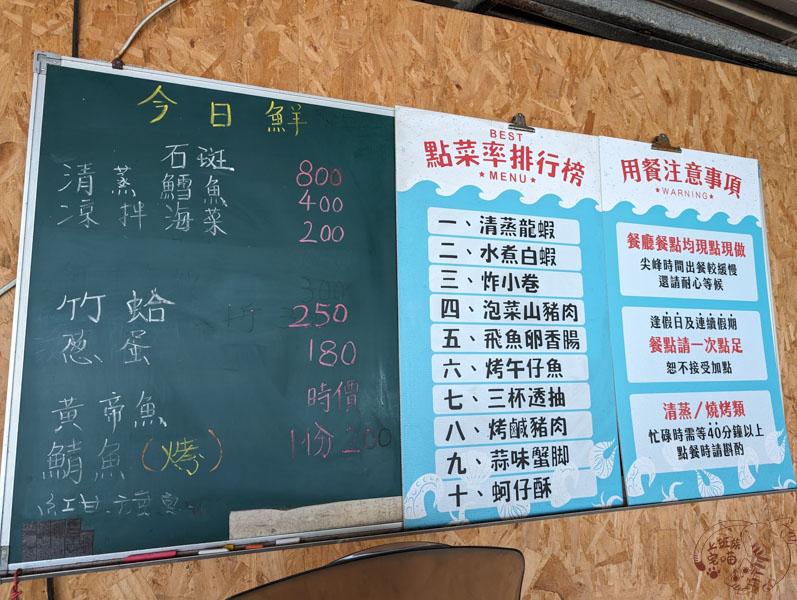 今日鮮
石斑 800
清蒸鱈魚 400
涼拌海菜 200
300
竹蛤 250
蔥蛋 180
黃帝魚 時價
鯖魚(烤) 1份200
紅甘
BEST
點菜率排行榜
★MENU★
一、清蒸龍蝦
二、水煮白蝦
三、炸小卷
四、泡菜山豬肉
五、飛魚卵香腸
六、烤午仔魚
七、三杯透抽
八、烤鹹豬肉
九、蒜味蟹脚
十、蚵仔酥
用餐注意事項
★WARNING★
餐廳餐點均現點現做
尖峰時間出餐較緩慢
還請耐心等候
逢假日及連續假期
餐點請一次點足
恕不接受加點
清蒸/燒烤類
忙碌時需等40分鐘以上
點餐時請斟酌